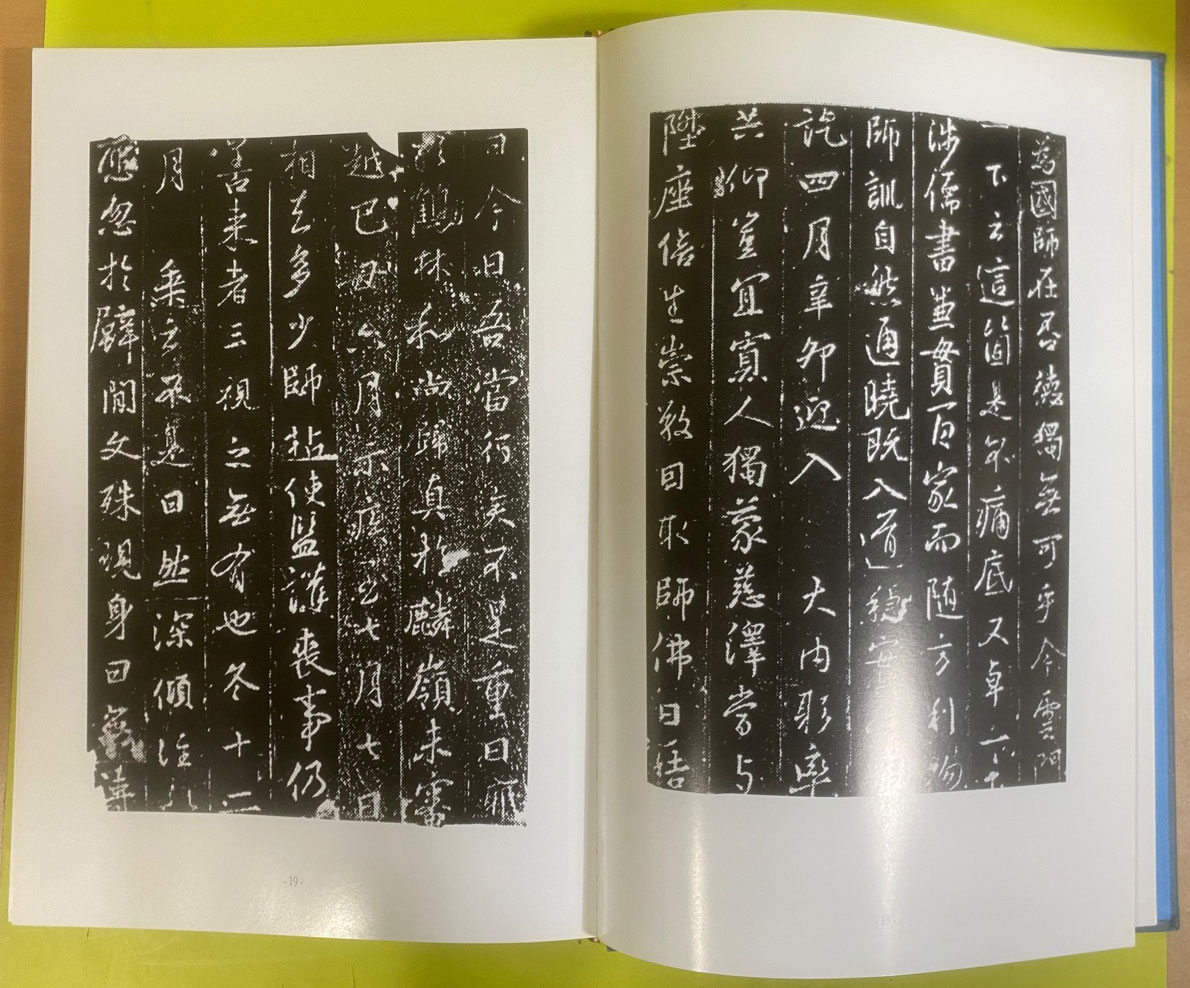 爲國師在否德獨無可乎今雲門
一下云這箇是不痛底又卓一下
涉儒書兼貫百家而隨方利物
師訓自然通曉既入道穩
訖四月辛卯迎入 大内躬率
共仰豈宜寡人獨蒙慈澤當與
陞座倍生崇敬因取師佛日結
日今日吾當行矣不是重日麽
鶴林和尚歸真於麟嶺未審
越己丑六月示疾至七月七日
相去多少師拈使監護喪事仍
善来者三視之無有也冬十二
月 乘云不是日然深傾注於
應忽於壁間文殊現身曰無
-19-